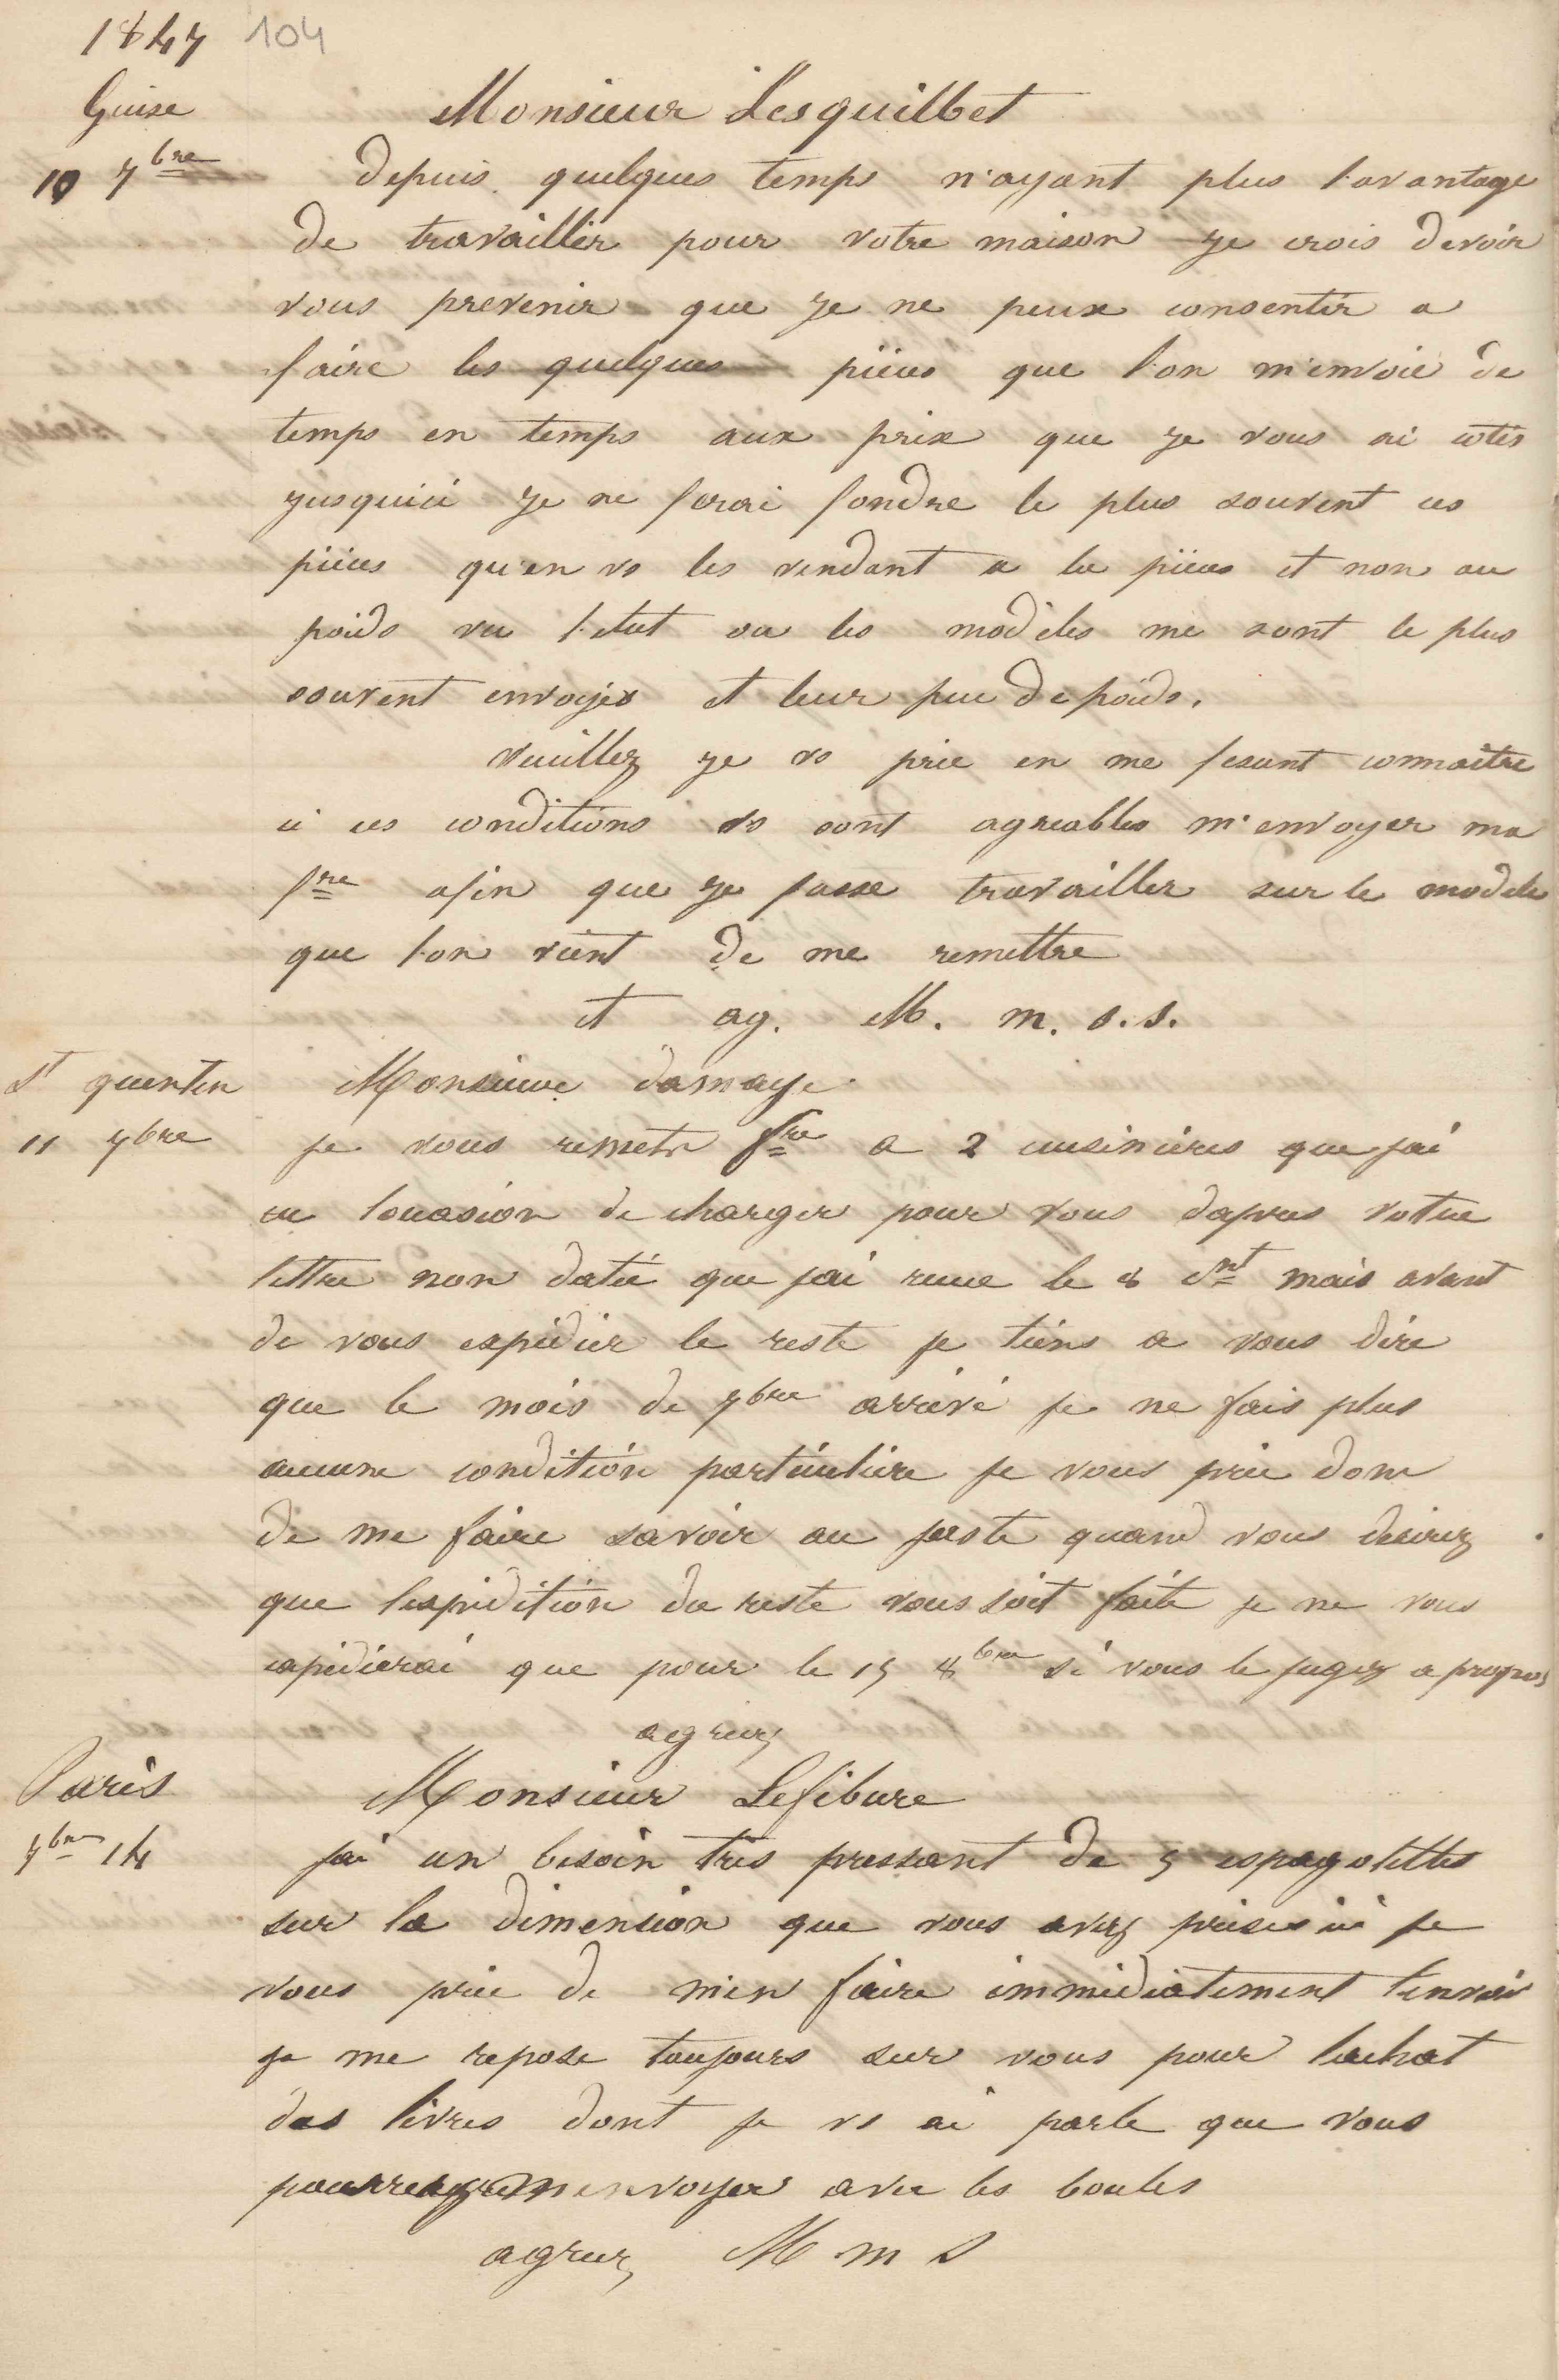 1847 104
Guise Monsieur Lesquilbet
10 7bre depuis quelques temps n'ayant plus l'avantage
de travailler pour votre maison je crois devoir
vous prevenir que je ne peux consentir a
faire les quelques pièces que l'on m'envoie de
temps en temps aux prix que je vous ai cotés
jusquici je ne ferai fondre le plus souvent ces
pièces qu'en vs les vendant a la pièces et non au
poids vu l'etat ou les modèles me sont le plus
souvent envoyés et leur peu de poids.
veuillez je vs prie en me fesant connaître
si ces conditions vs sont agreables m'envoyer ma
fre afin que je fasse travailler sur le modele
que l'on vient de me remettre
et ag. M. m. s. s.
St quentin Monsieur damaye
11 7bre je vous remets fre a 2 cuisinières que jai
eu locasion de charger pour vous dapres votre
lettre non datée que jai recue le 8 ct mais avant
de vous expédier le reste je tiens a vous dire
que le mois de 7bre arrivé je ne fais plus
aucune condition particulière je vous prie donc
de me faire savoir au juste quand vous desirez
que lexpédition du reste vous soit faite je ne vous
expédierai que pour le 15 8bre si vous le jugez a propos
agreez
Paris Monsieur Lefebure
7bre 14 jai un besoin très pressant de 5 espagolettes
sur la dimension que vous avez prises ici je
vous prie de m'en faire immédiatement l'envoi
je me repose toujours sur vous pour lachat
des livres dont je vs ai parle que vous
pourrez menvoyer avec les boules
agreez M m S